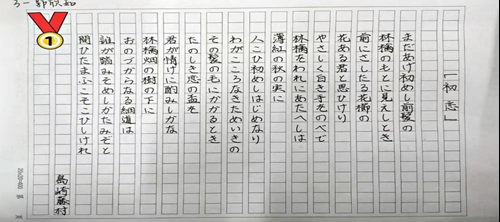 「初恋」
まだあげ初めし前髪の
林檎のもとに見えしとき
前にさしたる花櫛の
花ある君と思ひけり
やさしく白き手をのべて
林檎をわれにあたへしは
薄紅の秋の実に
人こひ初めしはじめなり
わがこころなきためいきの
その髪の毛にかかるとき
たのしき恋の盃を
君が情けに酌みしかな
林檎畑の樹の下に
おのづからなる細道は
誰が踏みそめしかたみぞと
問ひたまふこそこひしけれ
島崎藤村
1